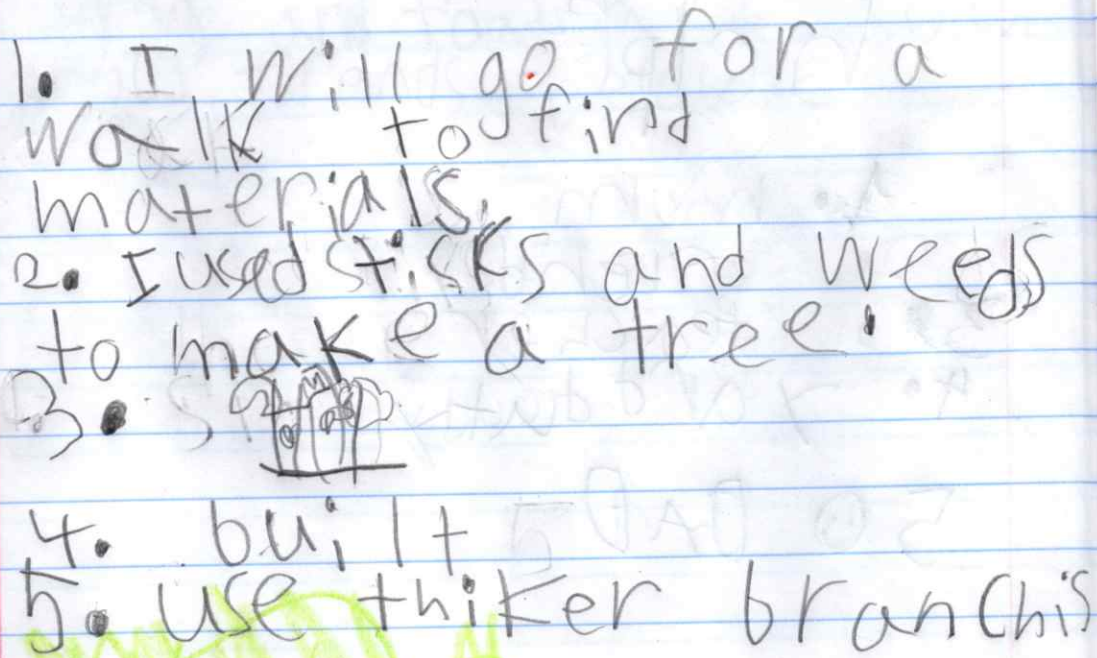 1. I will go for a
walk to find
materials.
2. I used sticks and weeds
to make a tree.
3.
4. built
5. use thiker branchis